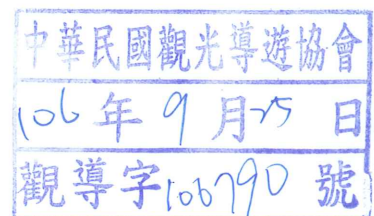 中華民國觀光導遊協會
106年9月25日
觀導字106790號